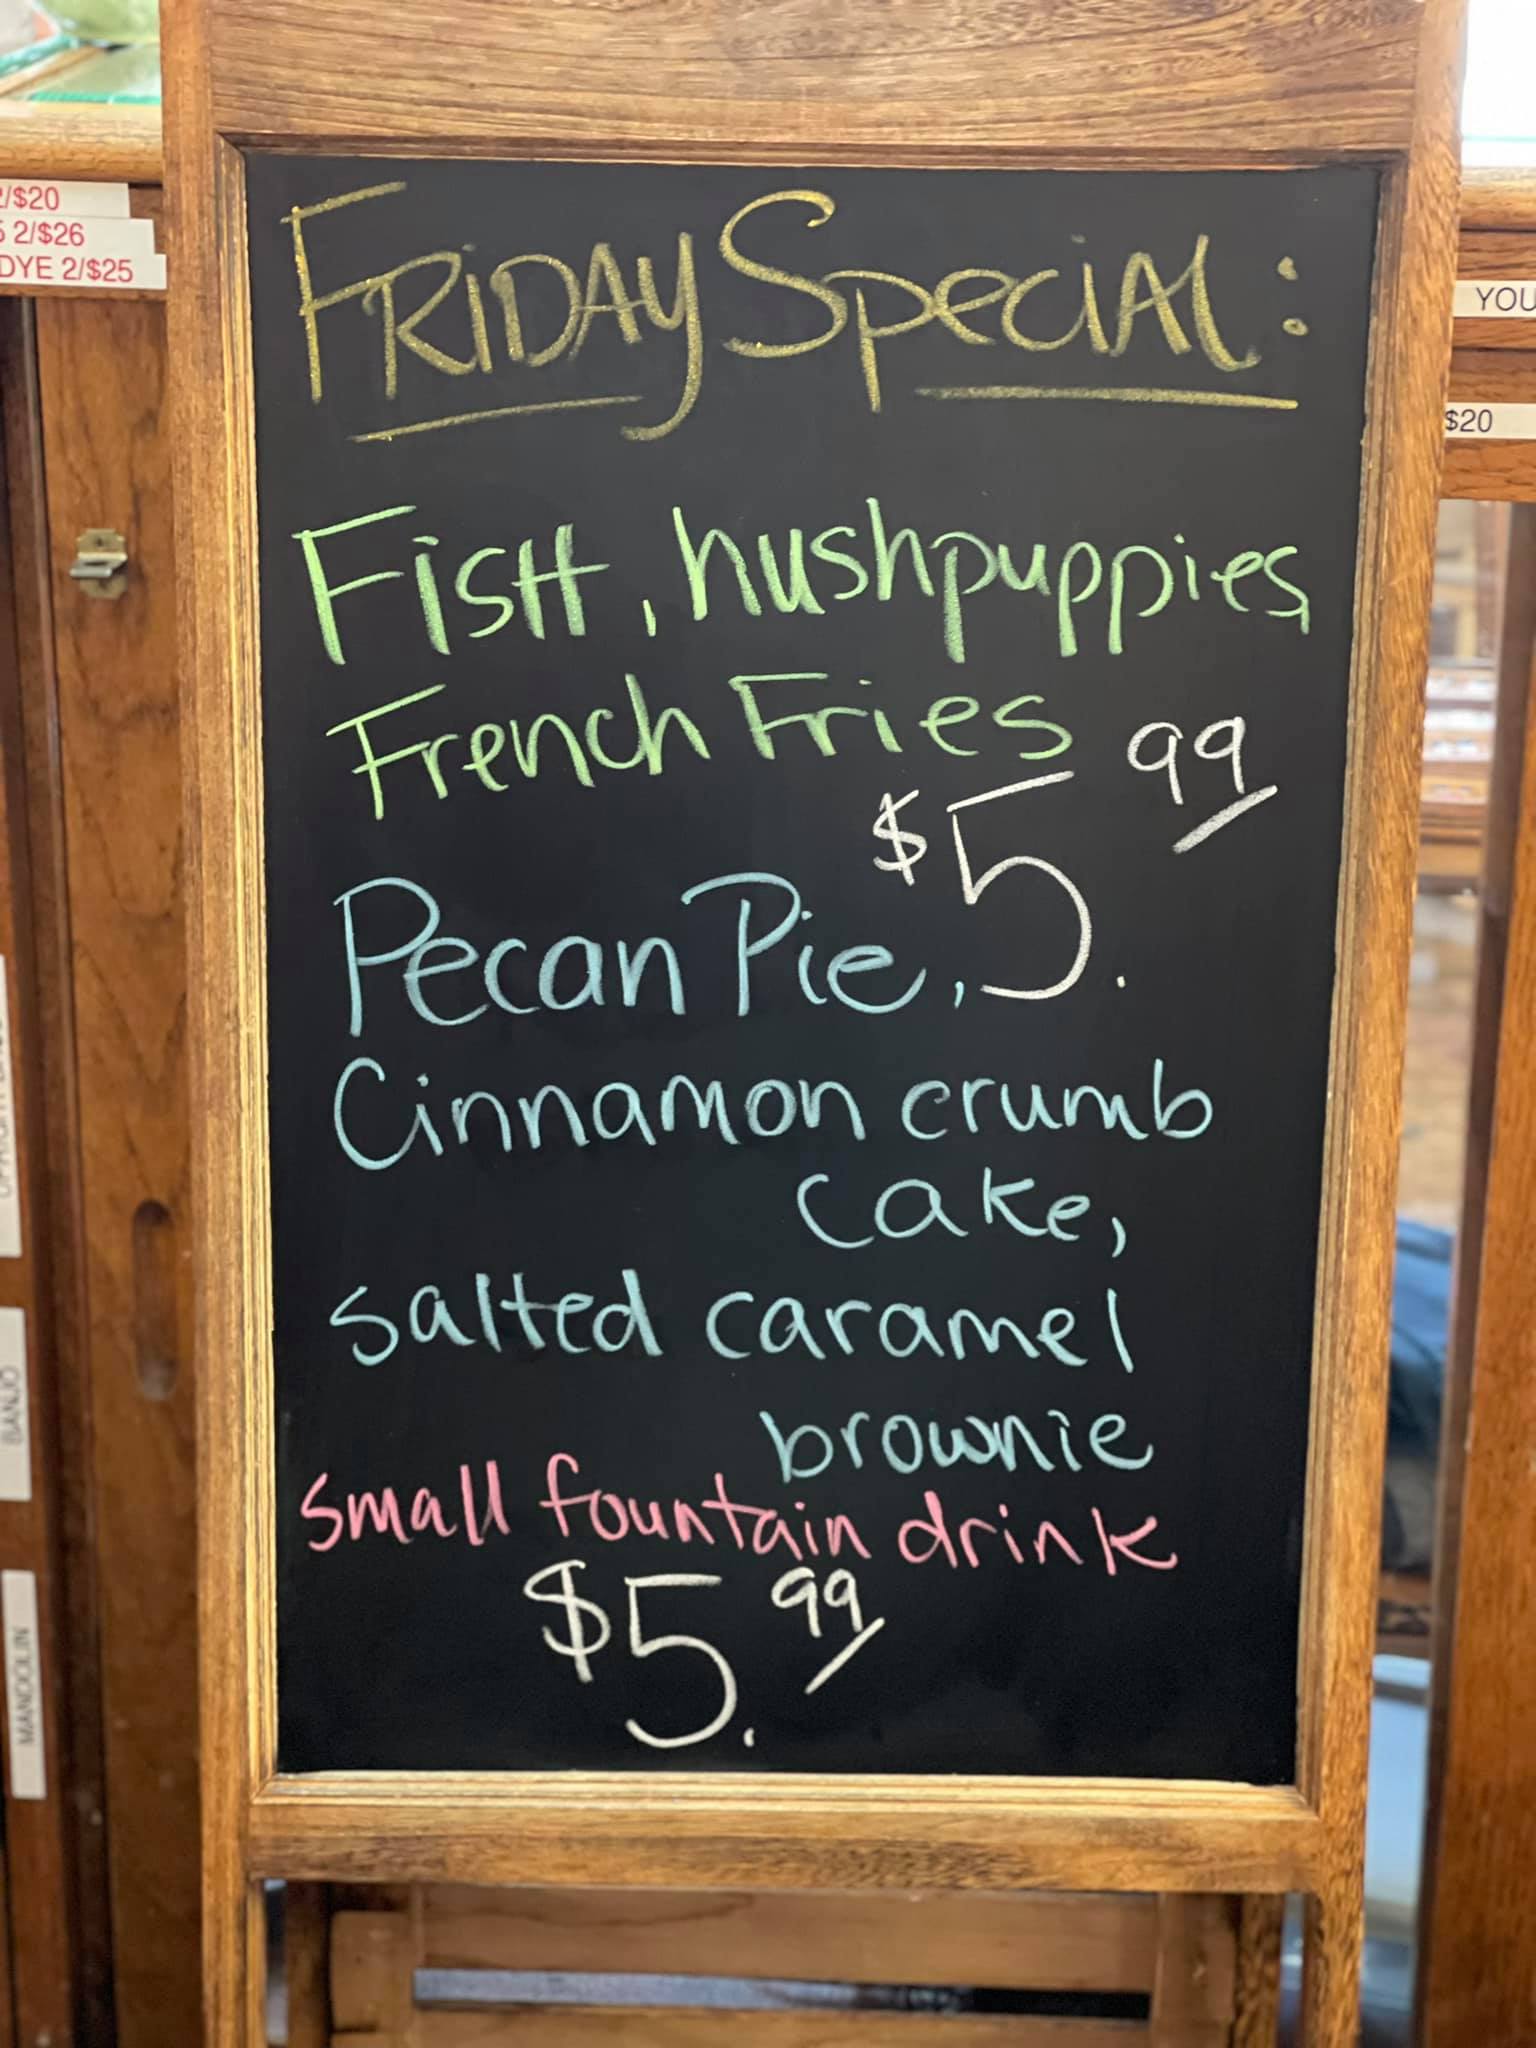 FRIDAY Special:
Fish, hushpuppies,
French Fries
$5.99
Pecan Pie,
Cinnamon crumb
cake,
salted caramel
brownie
small fountain drink
$5.99
2/$20
2/$26
DYE 2/$25
YOU
$20
BANJO
MANDOLIN